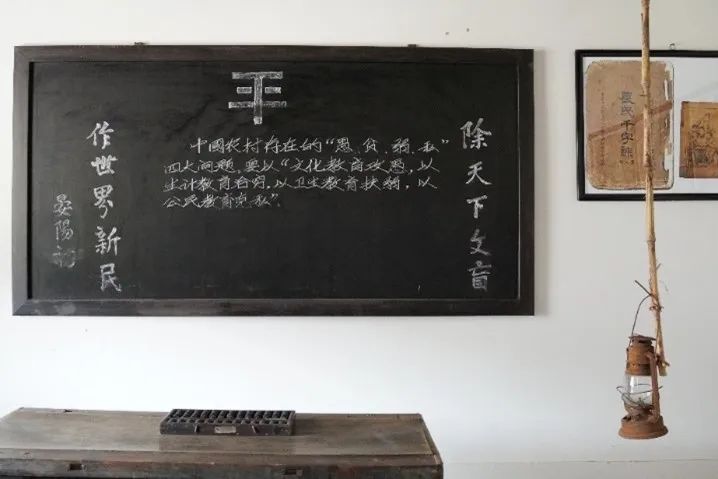 除天下文盲
中國农村存在的“愚、贫、弱、私”
四大问题，要以“文化教育攻愚，以
生计教育治穷，以卫生教育扶弱，以
公民教育克私”
作世界新民
晏陽初
農民千字課